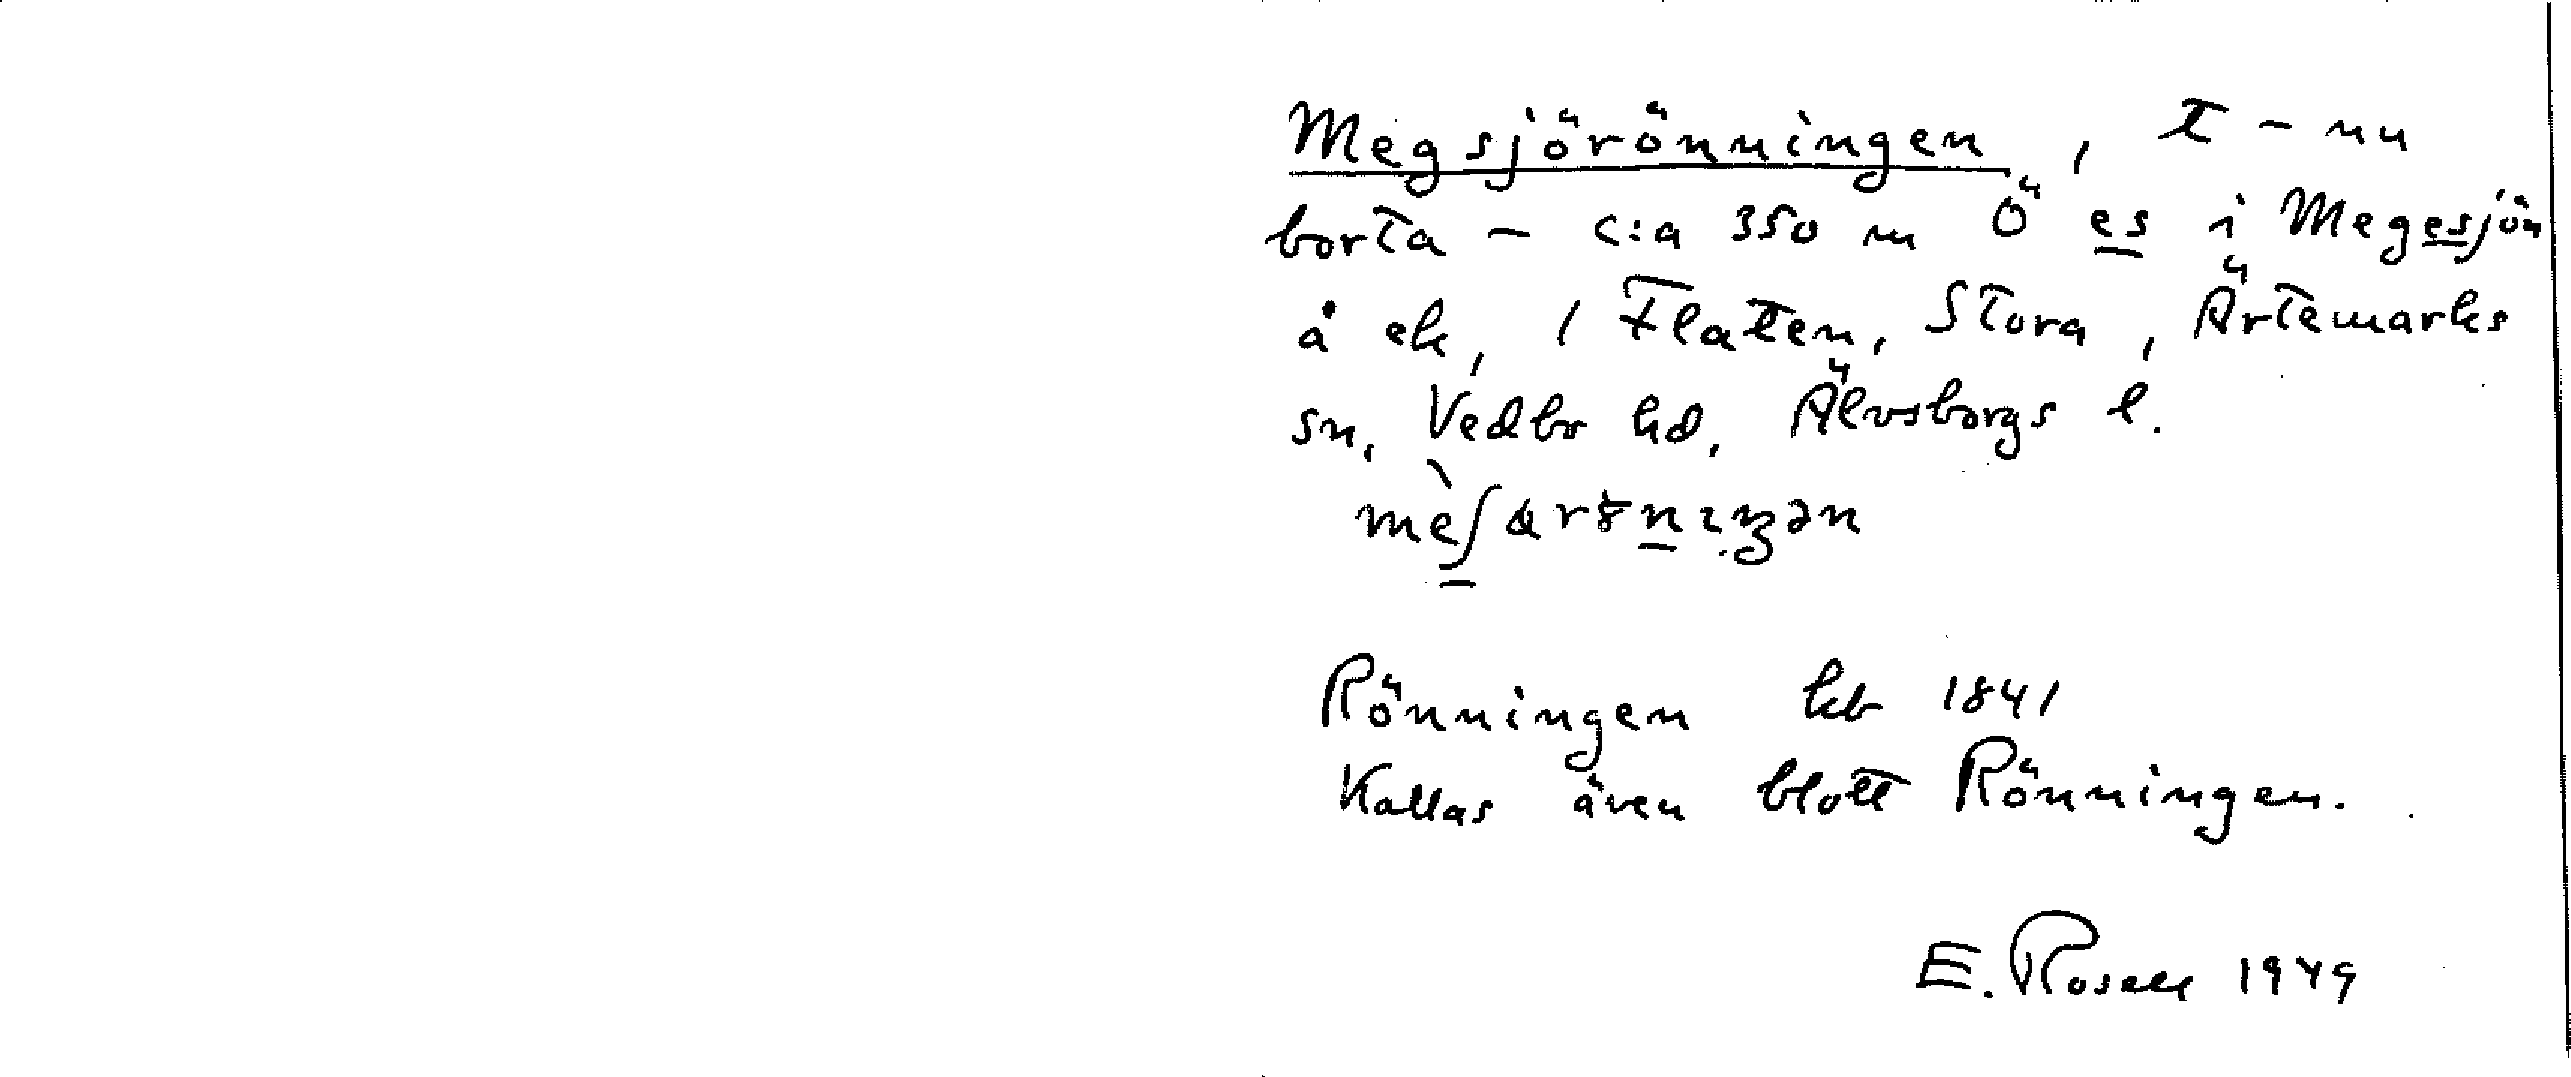 Megsjörönningen, t – nu
borta – c:a 350 m Ö es i Megesjön
å ek, 1 Flatten, Stora, Ärtemarks
sn, Vedbo hd, Älvsborgs l.
Rönningen kb 1841
Kallas även blott Rönningen.
E. Rosell 1949